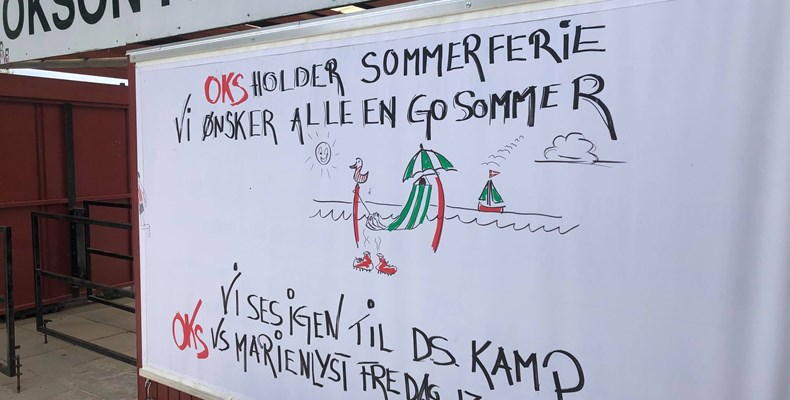 OKSHOLDER SOMMERFERIE
VI ØNSKER ALLE EN GO SOMMER
VI SES IGEN TIL DS. KAMP
OKS VS MARIENLYST FREDAG